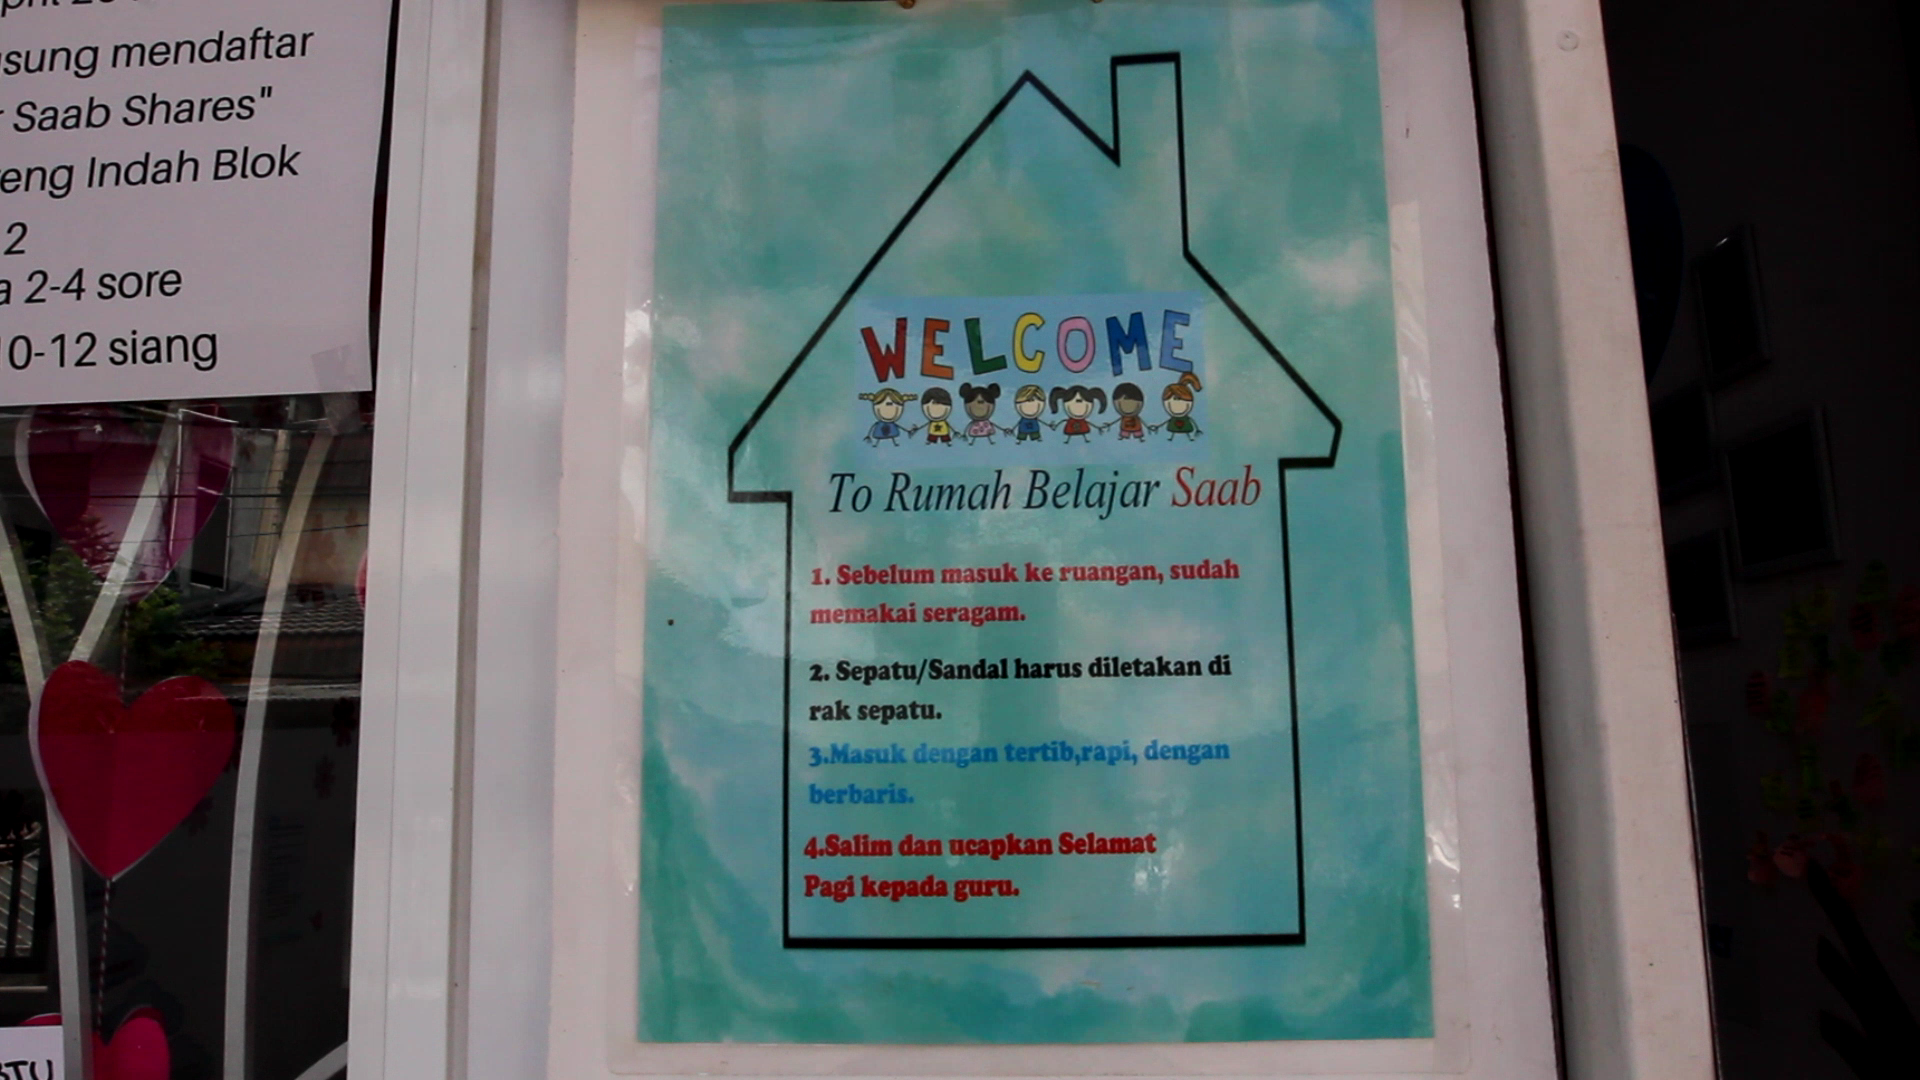 sung mendaftar
Saab Shares"
eng Indah Blok
2
2-4 sore
0-12 siang
WELCOME
To Rumah Belajar Saab
1. Sebelum masuk ke ruangan, sudah
memakai seragam.
2. Sepatu/Sandal harus diletakan di
rak sepatu.
3.Masuk dengan tertib,rapi, dengan
berbaris.
4.Salim dan ucapkan Selamat
Pagi kepada guru.